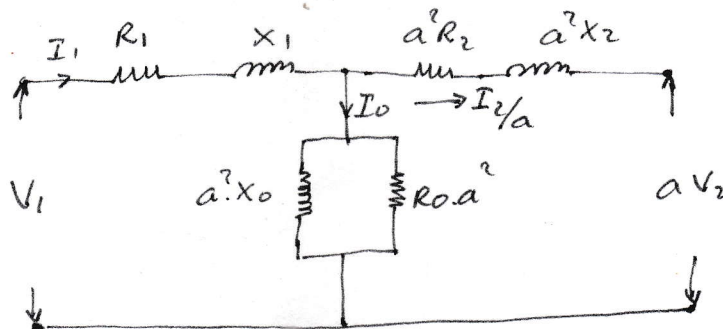 I₁ R₁ X₁ a²R₂ a²X₂
I₀ I₂/a
V₁ a².X₀ R₀.a² aV₂